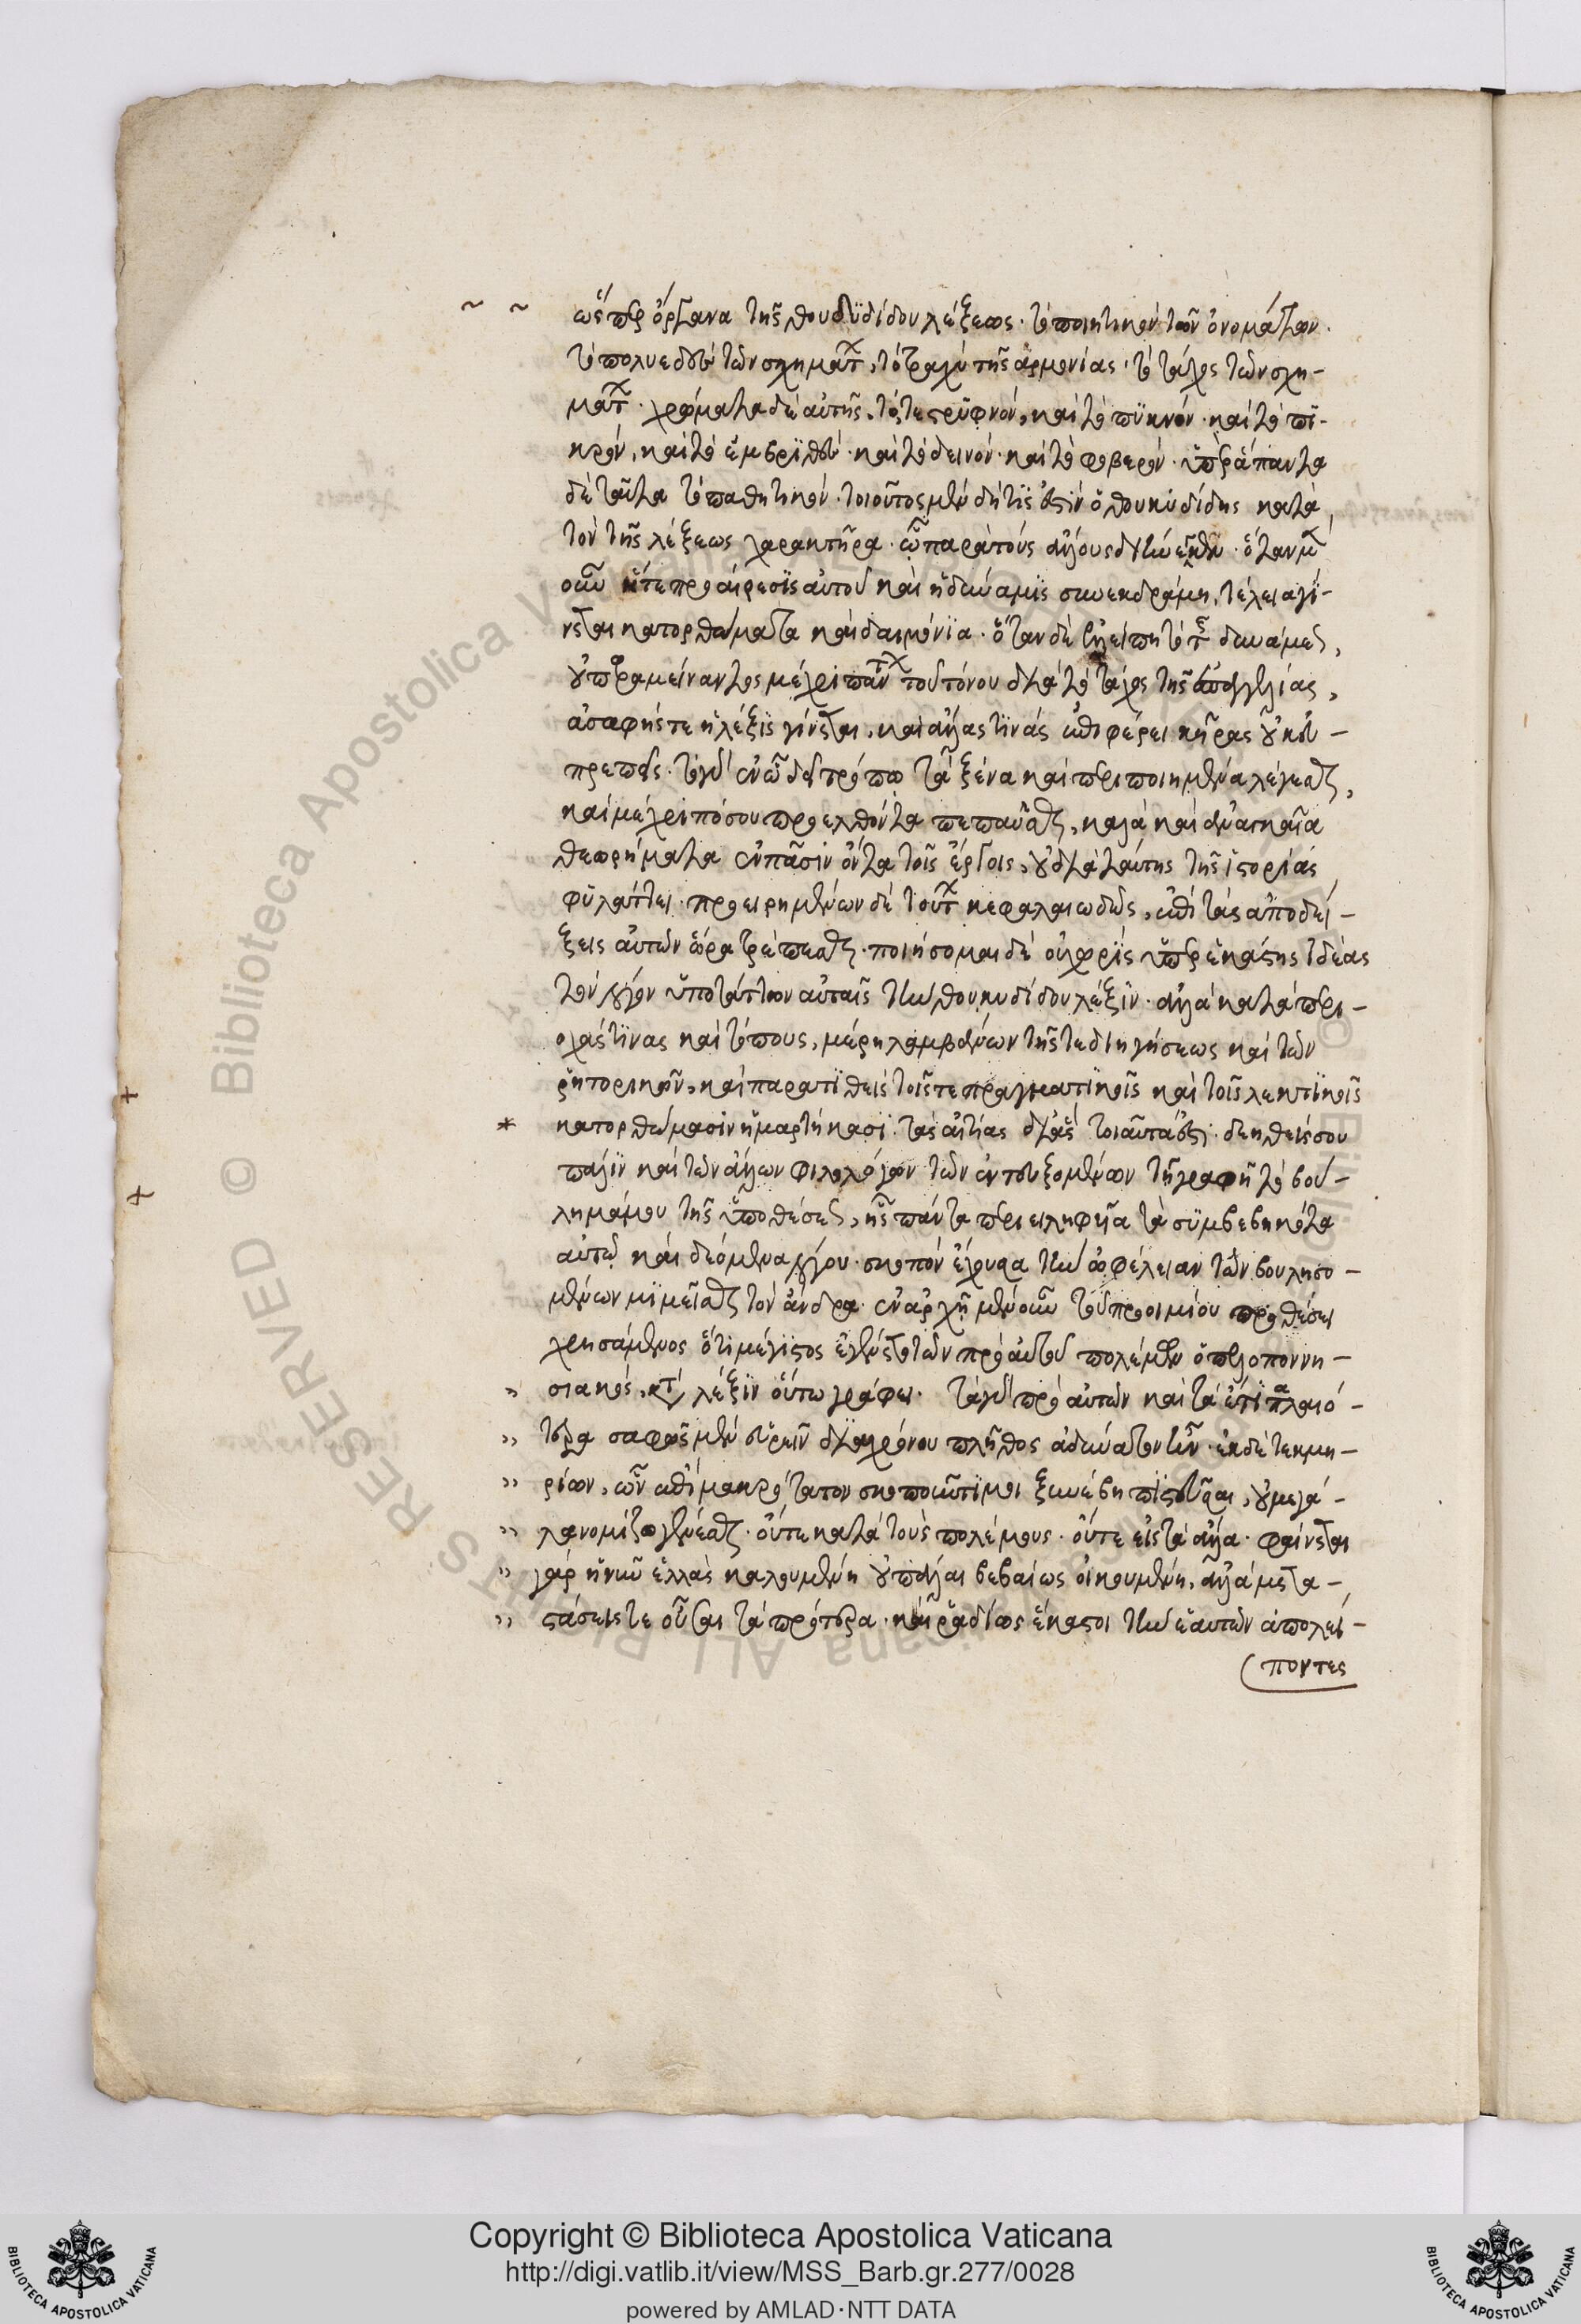 ὥσπερ ὄργανα τῆς θουκυδίδου λέξεως· τὸ ποιητικὸν τῶν ὀνομάτων·
τὸ πολυειδὲς τῶν σχημάτων, τὸ τραχὺ τῆς ἁρμονίας· τὸ τάχος τῶν σχη-
μάτων· χρώματα δὲ αὐτῆς, τό τε στρυφνόν, καὶ τὸ πυκνόν· καὶ τὸ πι-
κρόν, καὶ τὸ ἐμβριθὲς· καὶ τὸ δεινόν· καὶ τὸ φοβερόν· ὑπὲρ ἅπαντα
δὲ ταῦτα τὸ παθητικόν· τοιοῦτος μὲν δή τίς ἐστιν ὁ θουκυδίδης κατὰ
τὸν τῆς λέξεως χαρακτῆρα· ᾧ παρὰ τοὺς ἄλλους διήνεγκεν· ὅταν μὲν
οὖν ἥ τε προαίρεσις αὐτοῦ καὶ ἡ δύναμις συνεκδράμῃ, τέλεια γί-
νεται κατορθώματα καὶ δαιμόνια· ὅταν δὲ ἐλλείπῃ τὸ τῆς δυνάμεως,
οὐ παραμείναντος μέχρι πάντων τοῦ τόνου διὰ τὸ τάχος τῆς ἀπαγγελίας,
ἀσαφής τε ἡ λέξις γίνεται, καὶ ἄλλας τινὰς ἐπιφέρει κῆρας οὐκ εὐ-
πρεπεῖς· τὸ γὰρ ἐν ᾧ δεῖ τρόπῳ τὰ ξένα καὶ περιποιημένα λέγεσθαι,
καὶ μέχρι πόσου προελθόντα πεπαῦσθαι, καλὰ καὶ ἀναγκαῖα
θεωρήματα ἐν πᾶσιν ὄντα τοῖς ἔργοις, οὐ διὰ ταύτης τῆς ἱστορίας
φυλάττει· προειρημένων δὲ τούτων κεφαλαιωδῶς, ἐπὶ τὰς ἀποδεί-
ξεις αὐτῶν ὥρα τρέπεσθαι· ποιήσομαι δὲ οὐ χωρὶς ὑπὲρ ἑκάστης ἰδέας
τὸν λόγον ὑποτάττων αὐταῖς τὴν θουκυδίδου λέξιν· ἀλλὰ κατὰ περι-
οχάς τινας καὶ τόπους, μέρη λαμβάνων τῆς τε διηγήσεως καὶ τῶν
ῥητορικῶν, καὶ παρατιθεὶς τοῖς τε πραγματικοῖς καὶ τοῖς λεκτικοῖς
κατορθώμασιν ἡμαρτήκασι· τὰς αἰτίας δι' ἃς τοιαῦτά ἐστι· δεηθείς σου
πάλιν καὶ τῶν ἄλλων φιλολόγων τῶν ἐντευξομένων τῇ γραφῇ τὸ βού-
λημά μου τῆς ὑποθέσεως, ἧς πάντα περιειληφεῖα τὰ συμβεβηκότα
αὐτῷ καὶ δεόμενα λόγου· σκοπὸν ἔχουσα τὴν ὠφέλειαν τῶν βουλησο-
μένων μιμεῖσθαι τὸν ἄνδρα· ἐν ἀρχῇ μὲν οὖν τοῦ προοιμίου προθέσει
χρησάμενος ὅτι μέγιστος ἐγένετο τῶν πρὸ αὐτοῦ πολέμων ὁ πελοποννη-
σιακός, κατὰ λέξιν οὕτω γράφει· τὰ γὰρ πρὸ αὐτῶν καὶ τὰ ἔτι παλαιό-
τερα σαφῶς μὲν εὑρεῖν διὰ χρόνου πλῆθος ἀδύνατον ἦν· ἐκ δὲ τεκμη-
ρίων, ὧν ἐπὶ μακρότατον σκοποῦντί μοι ξυνέβη πιστεῦσαι, οὐ μεγά-
λα νομίζω γενέσθαι· οὔτε κατὰ τοὺς πολέμους· οὔτε εἰς τὰ ἄλλα· φαίνεται
γὰρ ἡ νῦν ἑλλὰς καλουμένη οὐ πάλαι βεβαίως οἰκουμένη, ἀλλὰ μετα-
στάσεις τε οὖσαι τὰ πρότερα· καὶ ῥᾳδίως ἕκαστοι τὴν ἑαυτῶν ἀπολεί-
ποντες
Copyright © Biblioteca Apostolica Vaticana
http://digi.vatlib.it/view/MSS_Barb.gr.277/0028
powered by AMLAD·NTT DATA